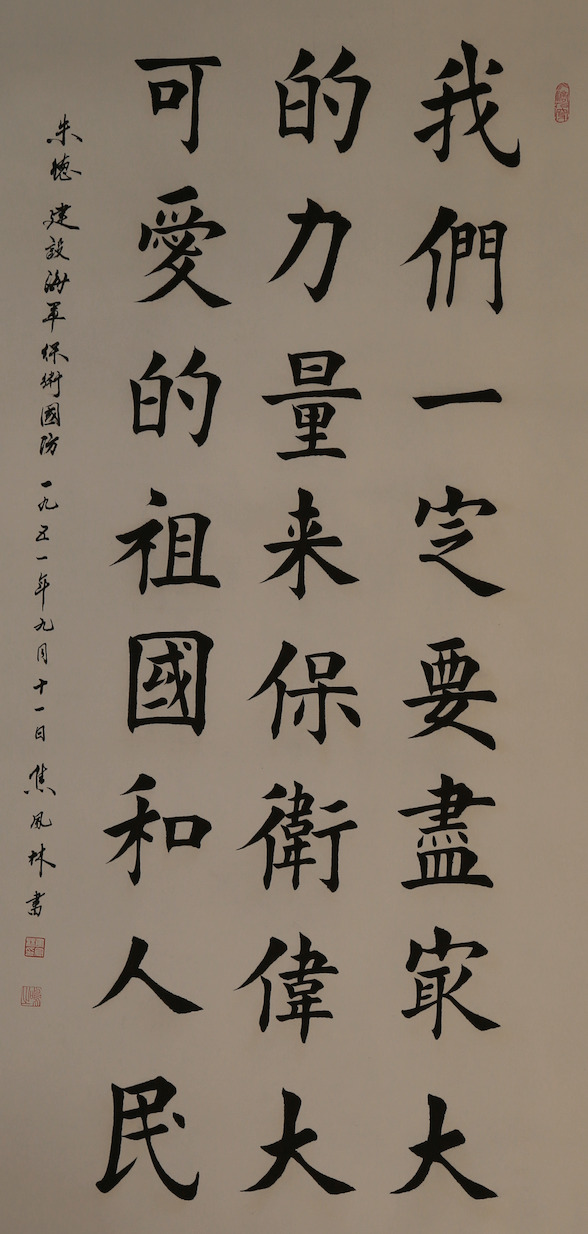 我們一定要盡冣大
的力量来保衛偉大
可愛的祖國和人民
朱德 建設海軍保衛國防 一九五一年九月十一日 焦风林書